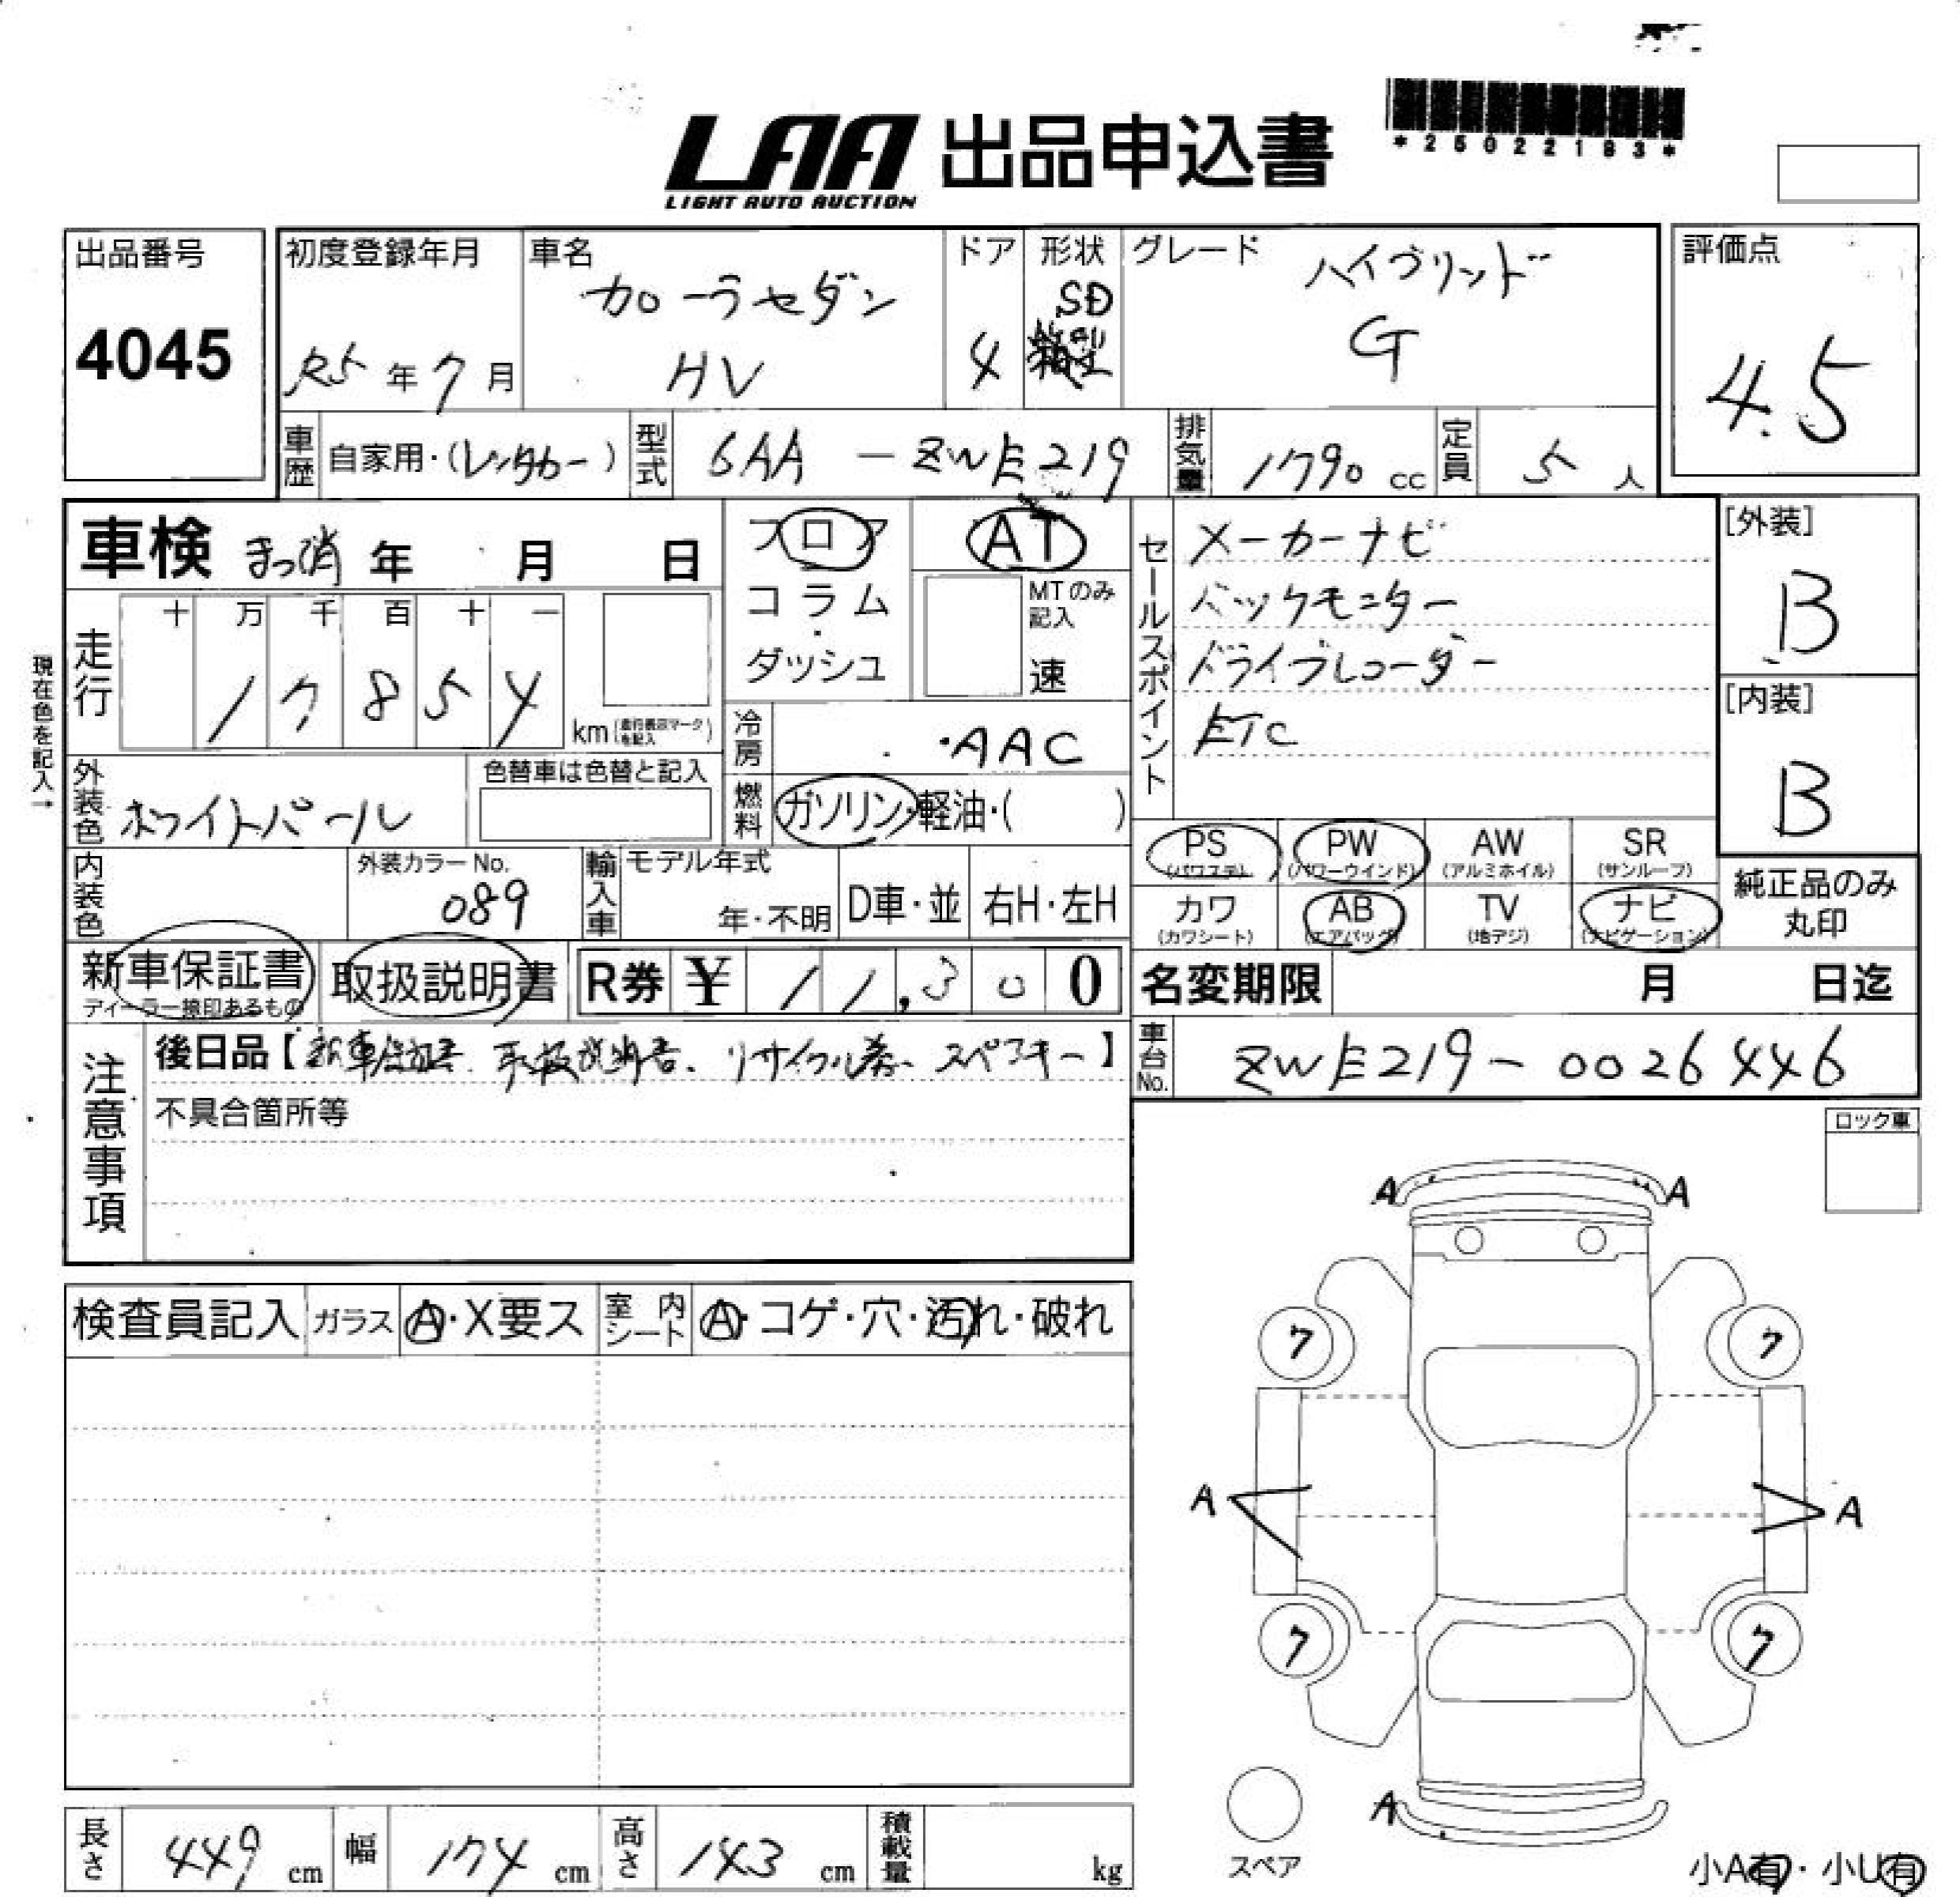 LAA 出品申込書
LIGHT AUTO AUCTION
*25022183*
出品番号
4045
初度登録年月
R5年7月
車名
カローラセダン
HV
ドア
4
形状
SD
箱型
グレード
ハイブリッド
G
評価点
4.5
車歴 自家用・(レンタカー)
型式 6AA-ZWE219
排気量 1790cc
定員 5人
車検 まっ消 年 月 日
フロア
コラム
・
ダッシュ
AT
MTのみ
記入
速
セールスポイント
メーカーナビ
バックモニター
ドライブレコーダー
ETC
[外装]
B
[内装]
B
現在色を記入→
走行
十万千百十一
17854
km(走行表示マークを記入)
冷房 AAC
外装色 ホワイトパール
色替車は色替と記入
燃料 ガソリン・軽油・( )
PS (パワステ)
PW (パワーウインド)
AW (アルミホイル)
SR (サンルーフ)
カワ (カワシート)
AB (エアバッグ)
TV (地デジ)
ナビ (ナビゲーション)
純正品のみ
丸印
内装色
外装カラーNo.
089
輸入車
モデル年式
年・不明
D車・並
右H・左H
新車保証書
ディーラー捺印あるもの
取扱説明書
R券 ¥ 11,300
名変期限 月 日迄
注意事項
後日品【新車保証書、取扱説明書、リサイクル券、スペアキー】
不具合箇所等
車台No. ZWE219-0026446
ロック車
検査員記入 ガラス A・X要ス 室内シート A・コゲ・穴・汚れ・破れ
A A
7 7
A A
7 7
A
スペア
長さ 449cm 幅 174cm 高さ 143cm 積載量 kg
小A有・小U有